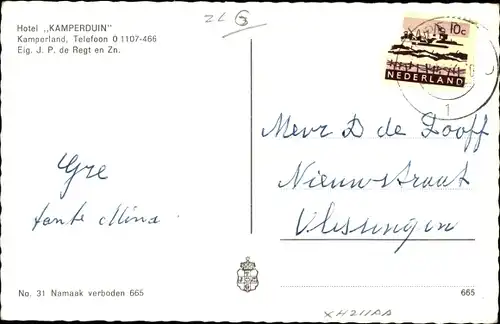 Hotel „KAMPERDUIN"
Kamperland, Telefoon 0 1107-466
Eig. J. P. de Regt en Zn.
ZL G
10c
NEDERLAND
1
Mevr D de Dooff
Nieuwstraat
Vlissingen
Gre
tante Mina.
No. 31 Namaak verboden 665
665
XH211AA